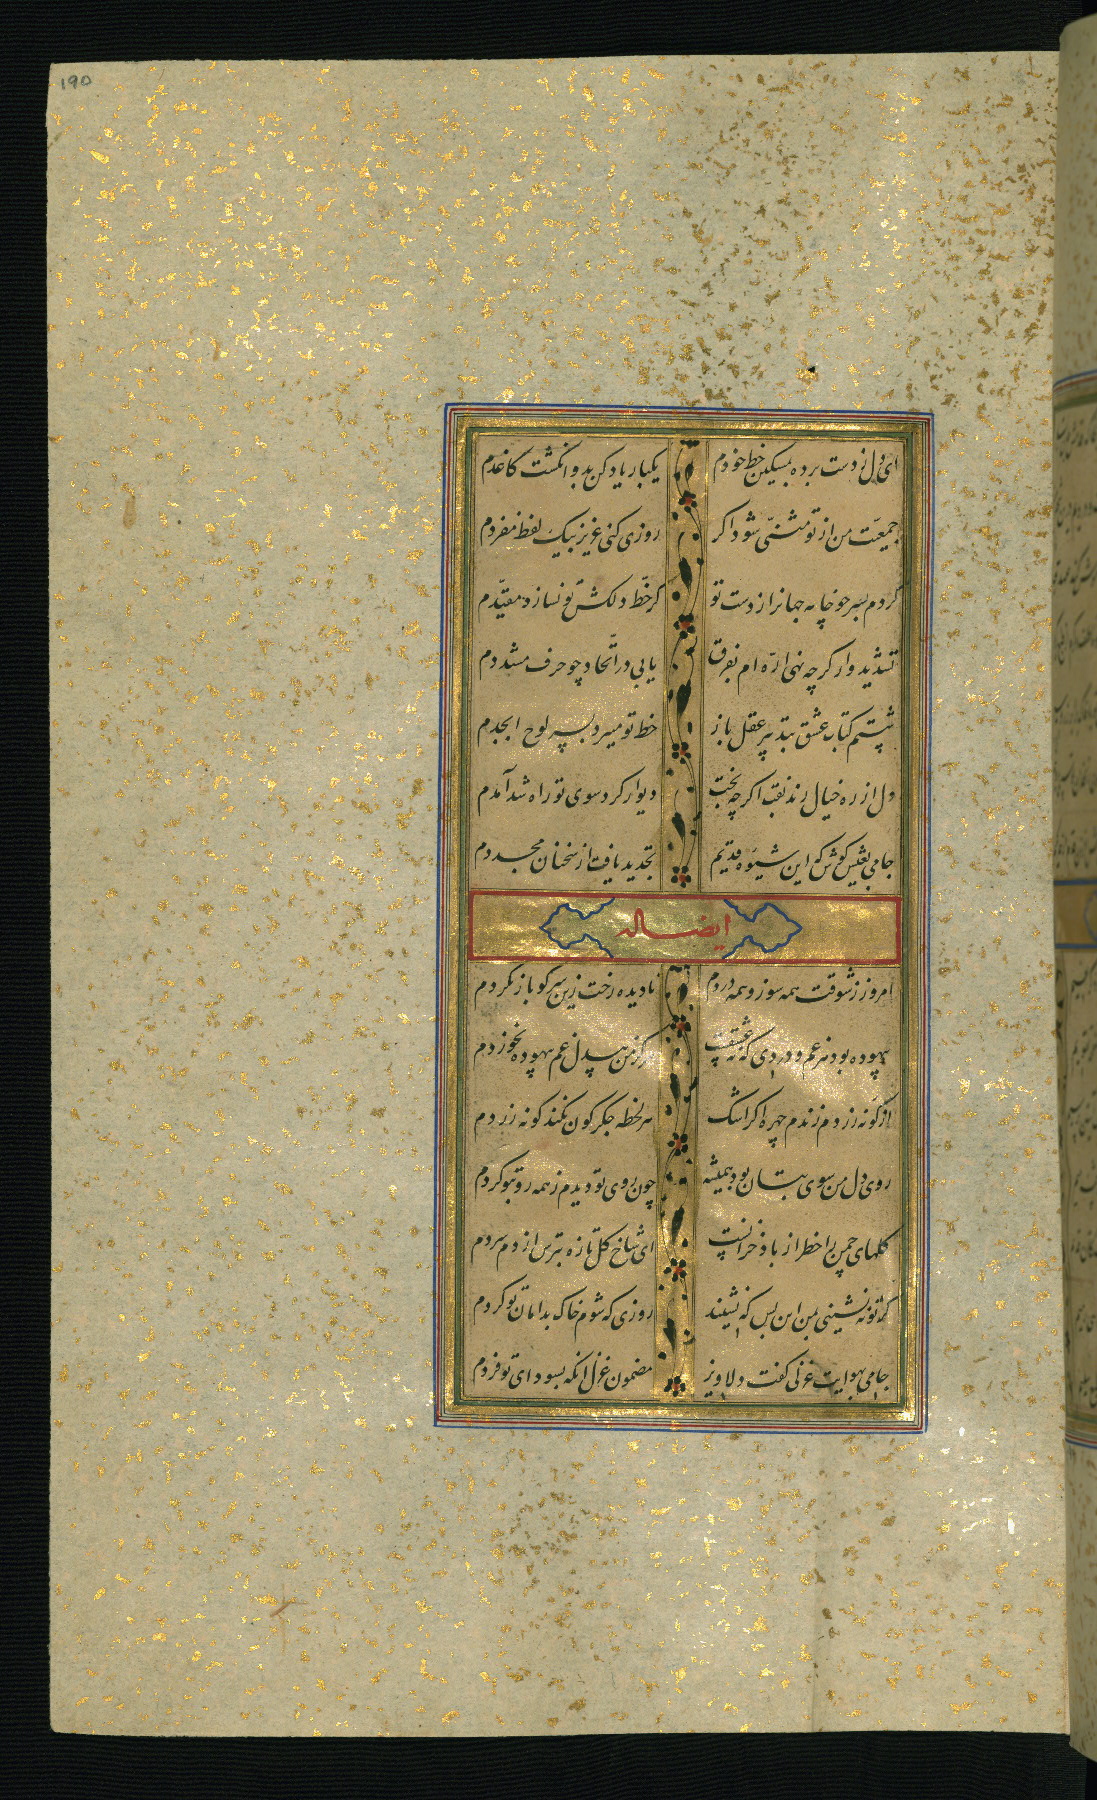 ۱۹۵
ای دل ز دست برده بمسکین خط خودم یکبار یاد کن بدو انگشت کاغدم
جمعیّت من از تو مثنّی شود اکر روزی کنی عزیز بیک لفظ مفردم
کردم بسر چو خامه جهانرا ز دست تو کر خطّ دلکش تو نسازد مقیّدم
تشدید وار کرچه نهی ارّه ام بفرق یابی در اتّحاد چو حرف مشددم
شستم کتاب عشق پیر عقل باز خط تو میبرد بسر لوح ابجدم
دل از ره خیال زند نقب اکر چه بخت دیوار کرد سوی تو راه شد آمدم
جامی بغیر کوش که این شیوه قدیم تجدید یافت از سخنان مجددم
ایضا له
امروز ز شوقت همه سوز و همه دردم نادیده رخت زین سر کو باز نکردم
بیهوده بود هر غم و دردی که نه عشقست هرکز من بیدل غم بیهوده نخوردم
از کونه زردم زندم چهره اکر اشک هر لحظه جکر کون نکند کونه زردم
روی دل من سوی بتان بود همیشه چون روی تو دیدم ز همه رو بتو کردم
کلهای چمن را خطر از باد خزانست ای شاخ کل تازه بترس از دم سردم
کر تو ننشینی بمن این بس که نشیند روزی که شوم خاک بدامان تو کردم
جامی بهوایت غزلی کفت دلاویز مضمون غزل آنکه بسودای تو فردم